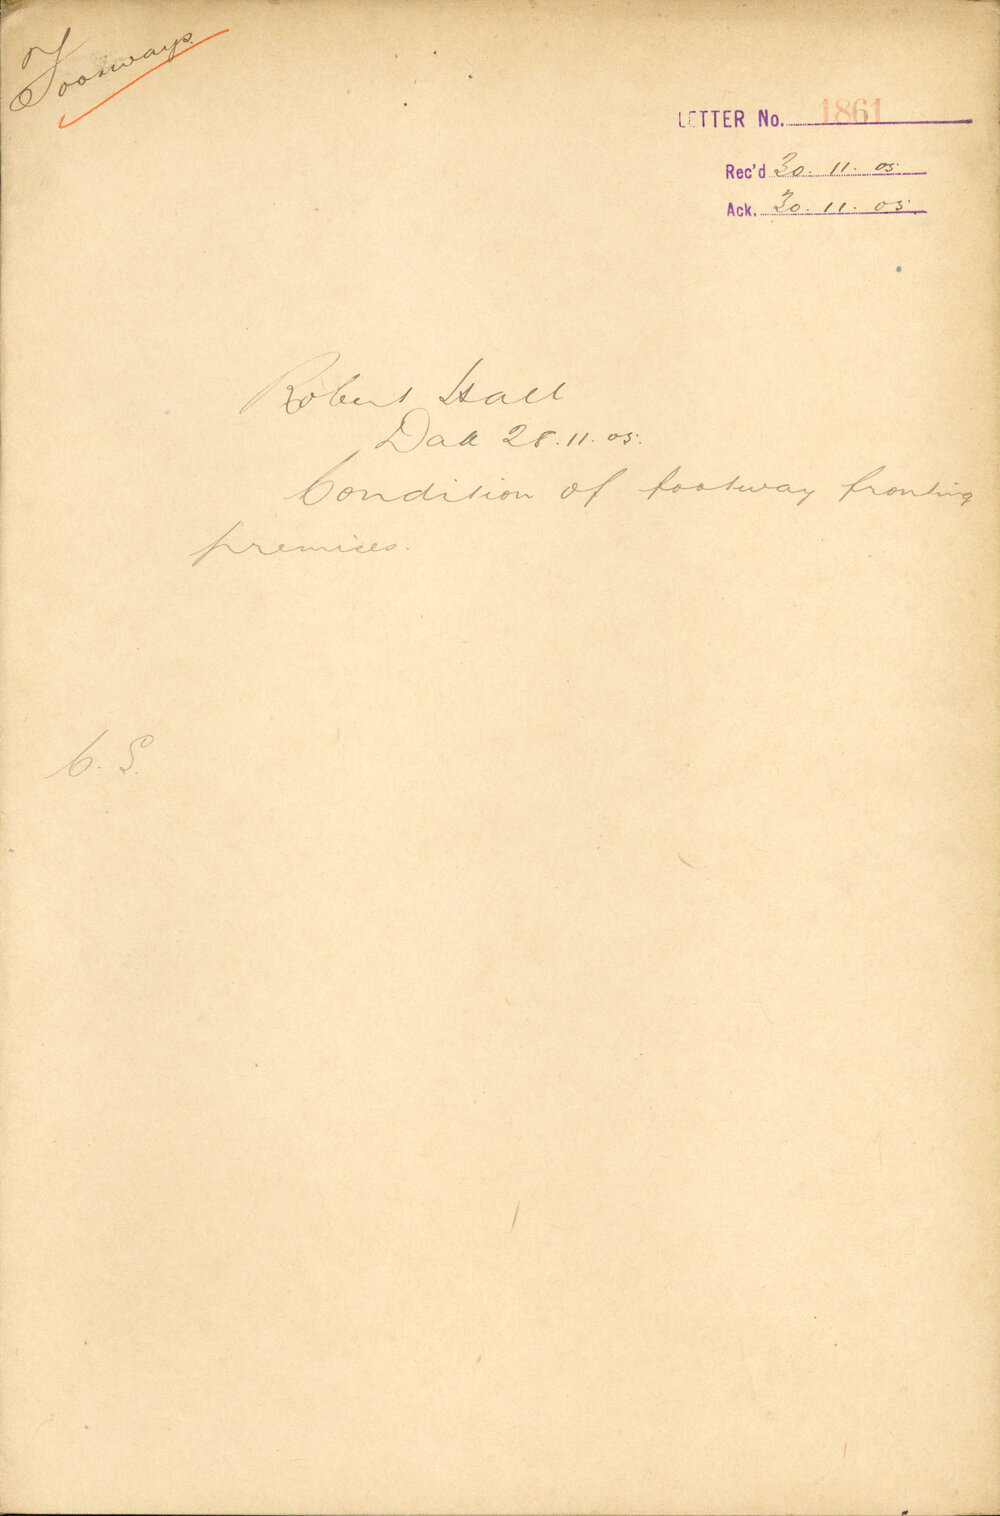 Footways.
LETTER No. 1861
Rec'd 30. 11. 05.
Ack. 30. 11. 05.
Robert Hall
Date 28. 11. 05.
Condition of footway fronting
premises.
C. S.